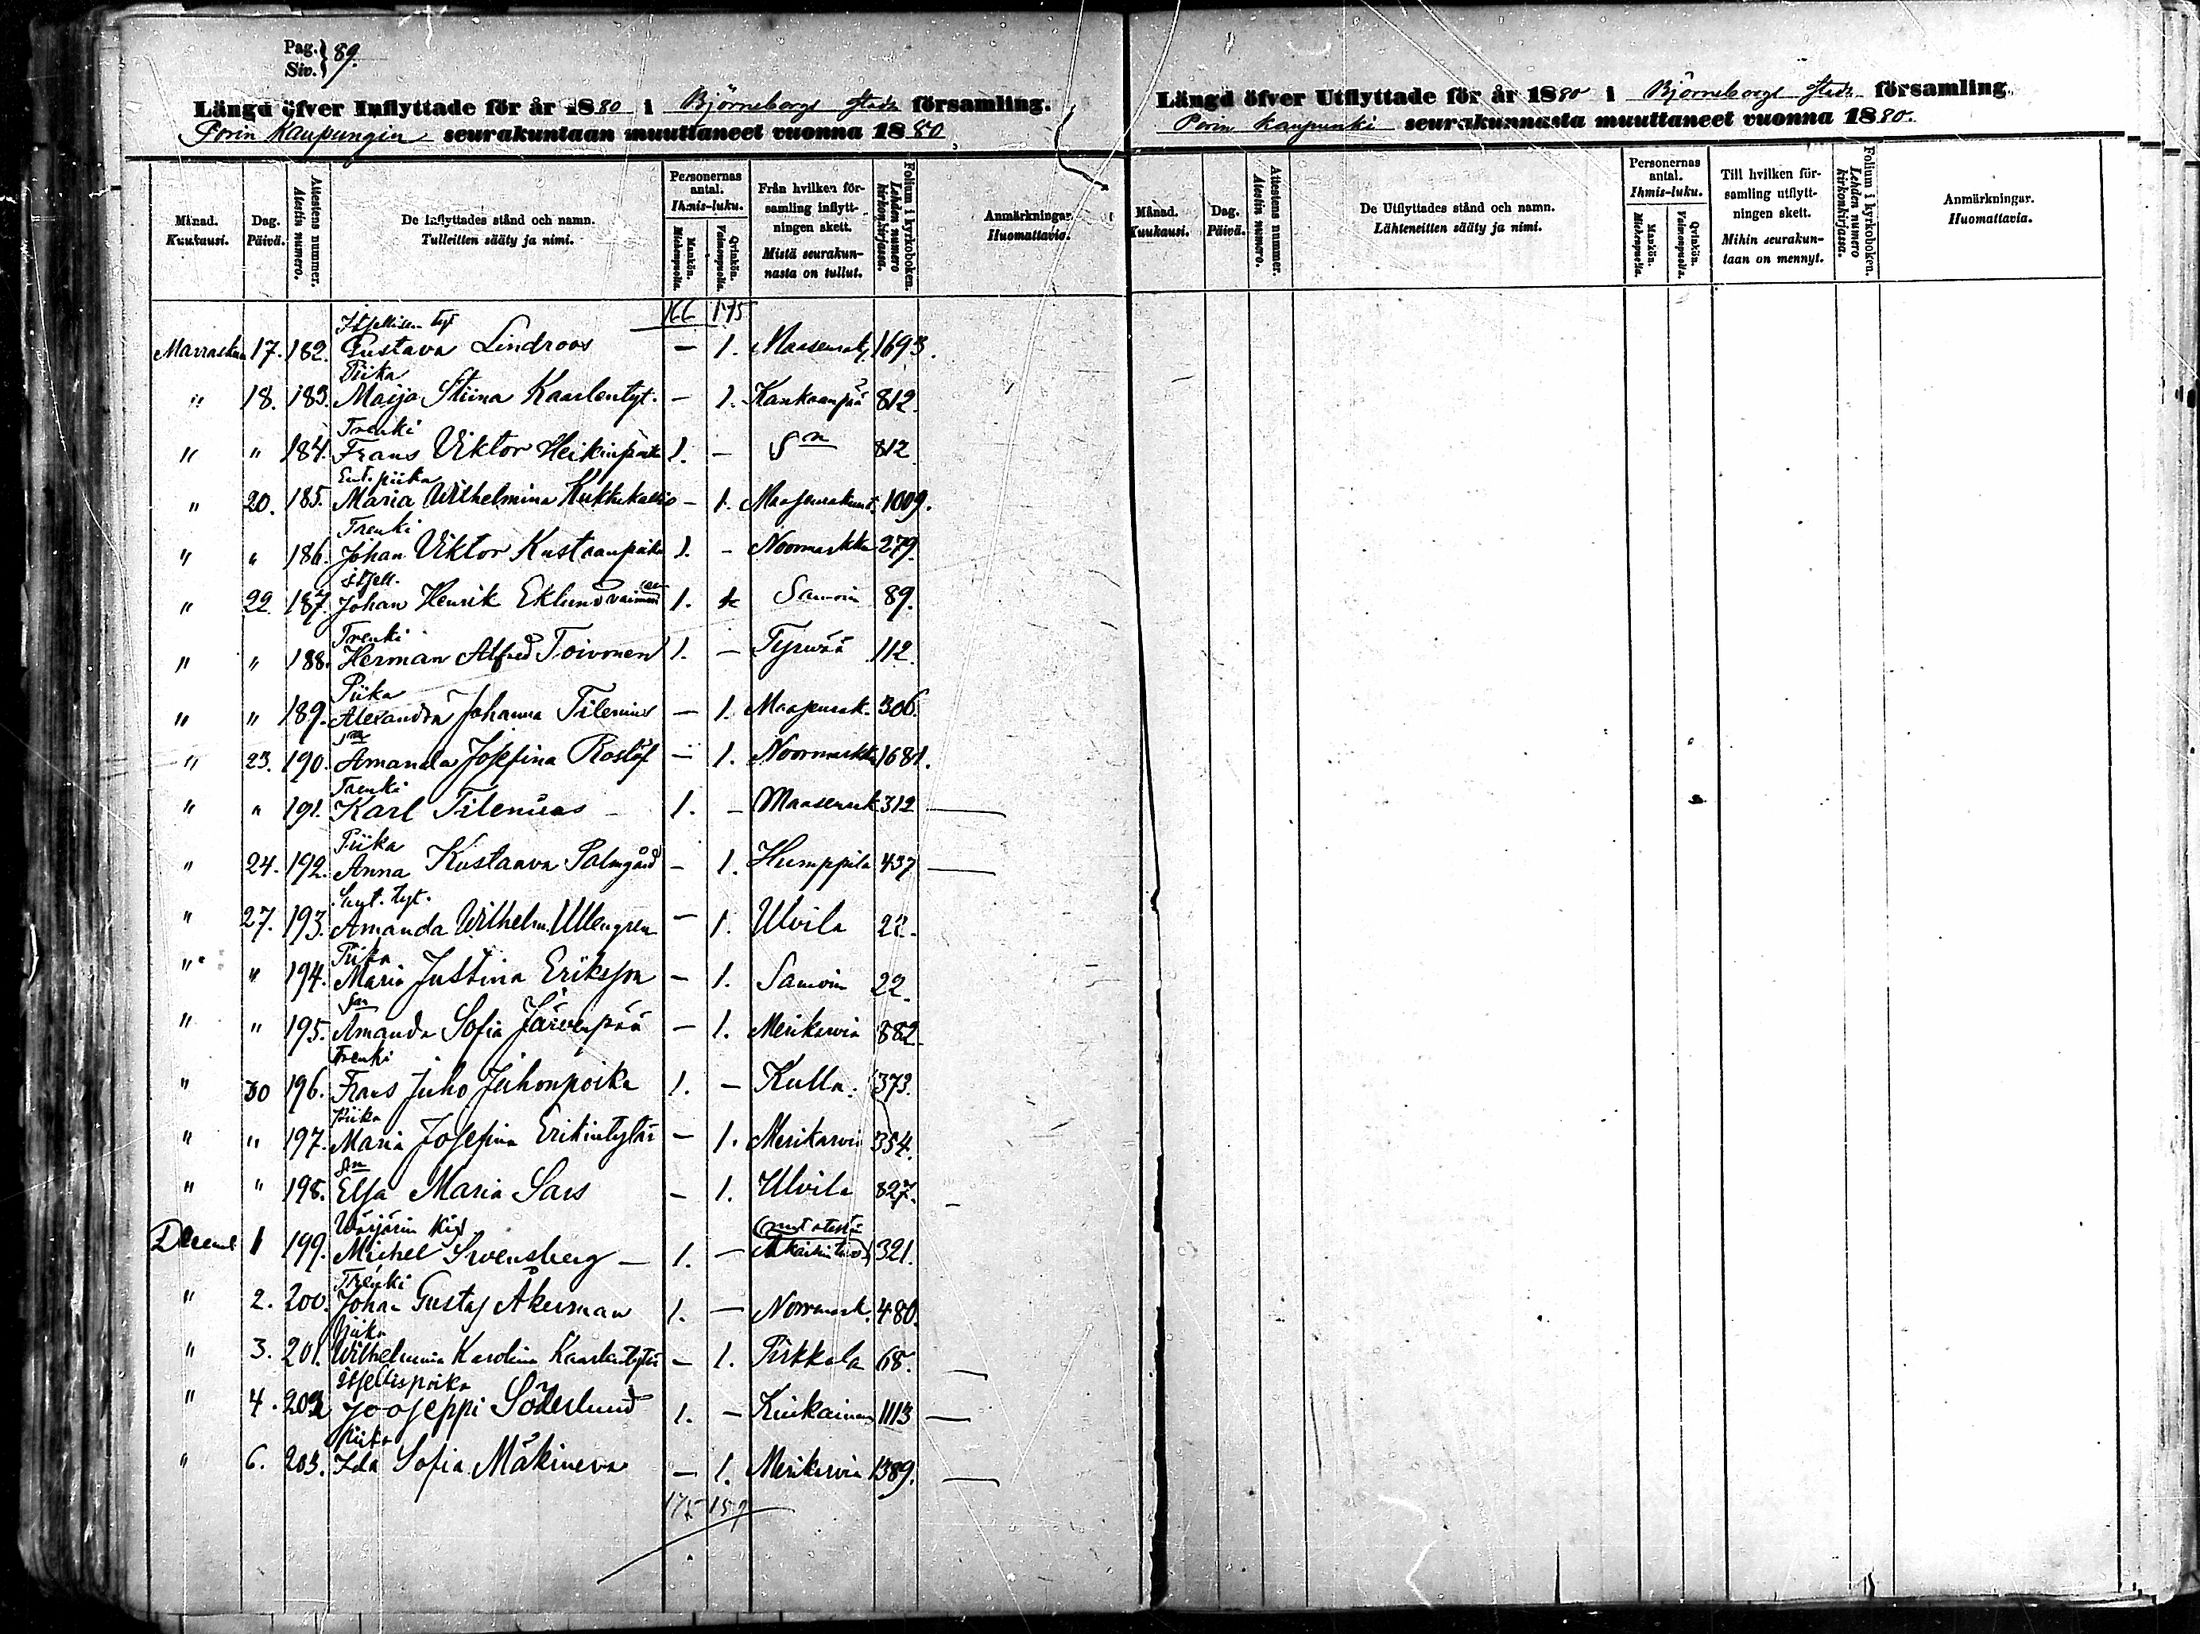 Pag. Siv. } 89.
Längd öfver Inflyttade för år 1880 i Björneborgs stads församling.
Porin Kaupungin seurakuntaan muuttaneet vuonna 1880
Månad. Kuukausi.
Dag. Päivä.
Attestens nummer. Atestin numero.
De Inflyttades stånd och namn. Tulleitten sääty ja nimi.
Personernas antal. Ihmis-luku.
Mankön. Miehenpuolia.
Qvinkön. Vaimonpuolia.
Från hvilken församling inflyttningen skett. Mistä seurakunnasta on tullut.
Folium i kyrkoboken. Lehden numero kirkonkirjassa.
Anmärkningar. Huomattavia.
166 175
Itsellisen tyt
17. 182. Gustava Lindroos — 1. Maaseurak. 1693.
Piika
" 18. 183. Maija Stiina Kaarlentyt. — 1. Kankaanpää 812.
Trenki
" " 184. Frans Viktor Heikinpoika 1. — Sn 812
Ent. piika
" 20. 185. Maria Wilhelmina Kukkukallio — 1. Maaseurakunt. 1009.
Trenki
" " 186. Johan Viktor Kustaanpoika 1. — Noormarkku 279.
itsell.
" 22. 187. Johan Henrik Eklund 1. Samoin 89.
Trenki
" " 188. Herman Alfred Toivonen 1. — Tyrwää 112.
Piika
" " 189. Alexandra Johanna Tilenius — 1. Maaseurak. 306.
Sn
" 23. 190. Amanda Josefina Roslöf — 1. Noormarkku 1681.
Trenki
" " 191. Karl Tilenius — 1. — Maaseurak 312
Piika
" 24. 192. Anna Kustaava Palmgård — 1. Humppila 437
tyt.
" 27. 193. Amanda Wilhelm. Ullengren — 1. Ulvila 22.
Piika
" " 194. Maria Justina Eriksson — 1. Samoin 22.
Sn
" " 195. Amanda Sofia Järvenpää — 1. Merikarvia 382.
Trenki
" 30 196. Frans Juho Juhonpoika 1. — Kulla. 373.
Piika
" " 197. Maria Josefina Erikintytär — 1. Merikarvia 354.
Sn
" " 198. Elsa Maria Sars — 1. Ulvila 827.
Wärjärin
1 199. Michel Swensberg — 1. — 321.
Trenki
" 2. 200. Johan Gustaf Åkerman 1. — Norrmark. 480.
Piika
" 3. 201. Wilhelmina Karolina Kaarlentytär — 1. Pirkkala 68.
itsellispoika
" 4. 202 Jooseppi Söderlund 1. — Kiukainen 1113
Piika
" 6. 203. Ida Sofia Mäkineva — 1. Merikarvia 1389.
175 189
Längd öfver Utflyttade för år 1880 i Björneborgs stads församling
Porin kaupunki seurakunnasta muuttaneet vuonna 1880.
Månad. Kuukausi.
Dag. Päivä.
Attestens nummer. Atestin numero.
De Utflyttades stånd och namn. Lähteneitten sääty ja nimi.
Personernas antal. Ihmis-luku.
Mankön. Miehenpuolia.
Qvinkön. Vaimonpuolia.
Till hvilken församling utflyttningen skett. Mihin seurakuntaan on mennyt.
Folium i kyrkoboken. Lehden numero kirkonkirjassa.
Anmärkningar. Huomattavia.